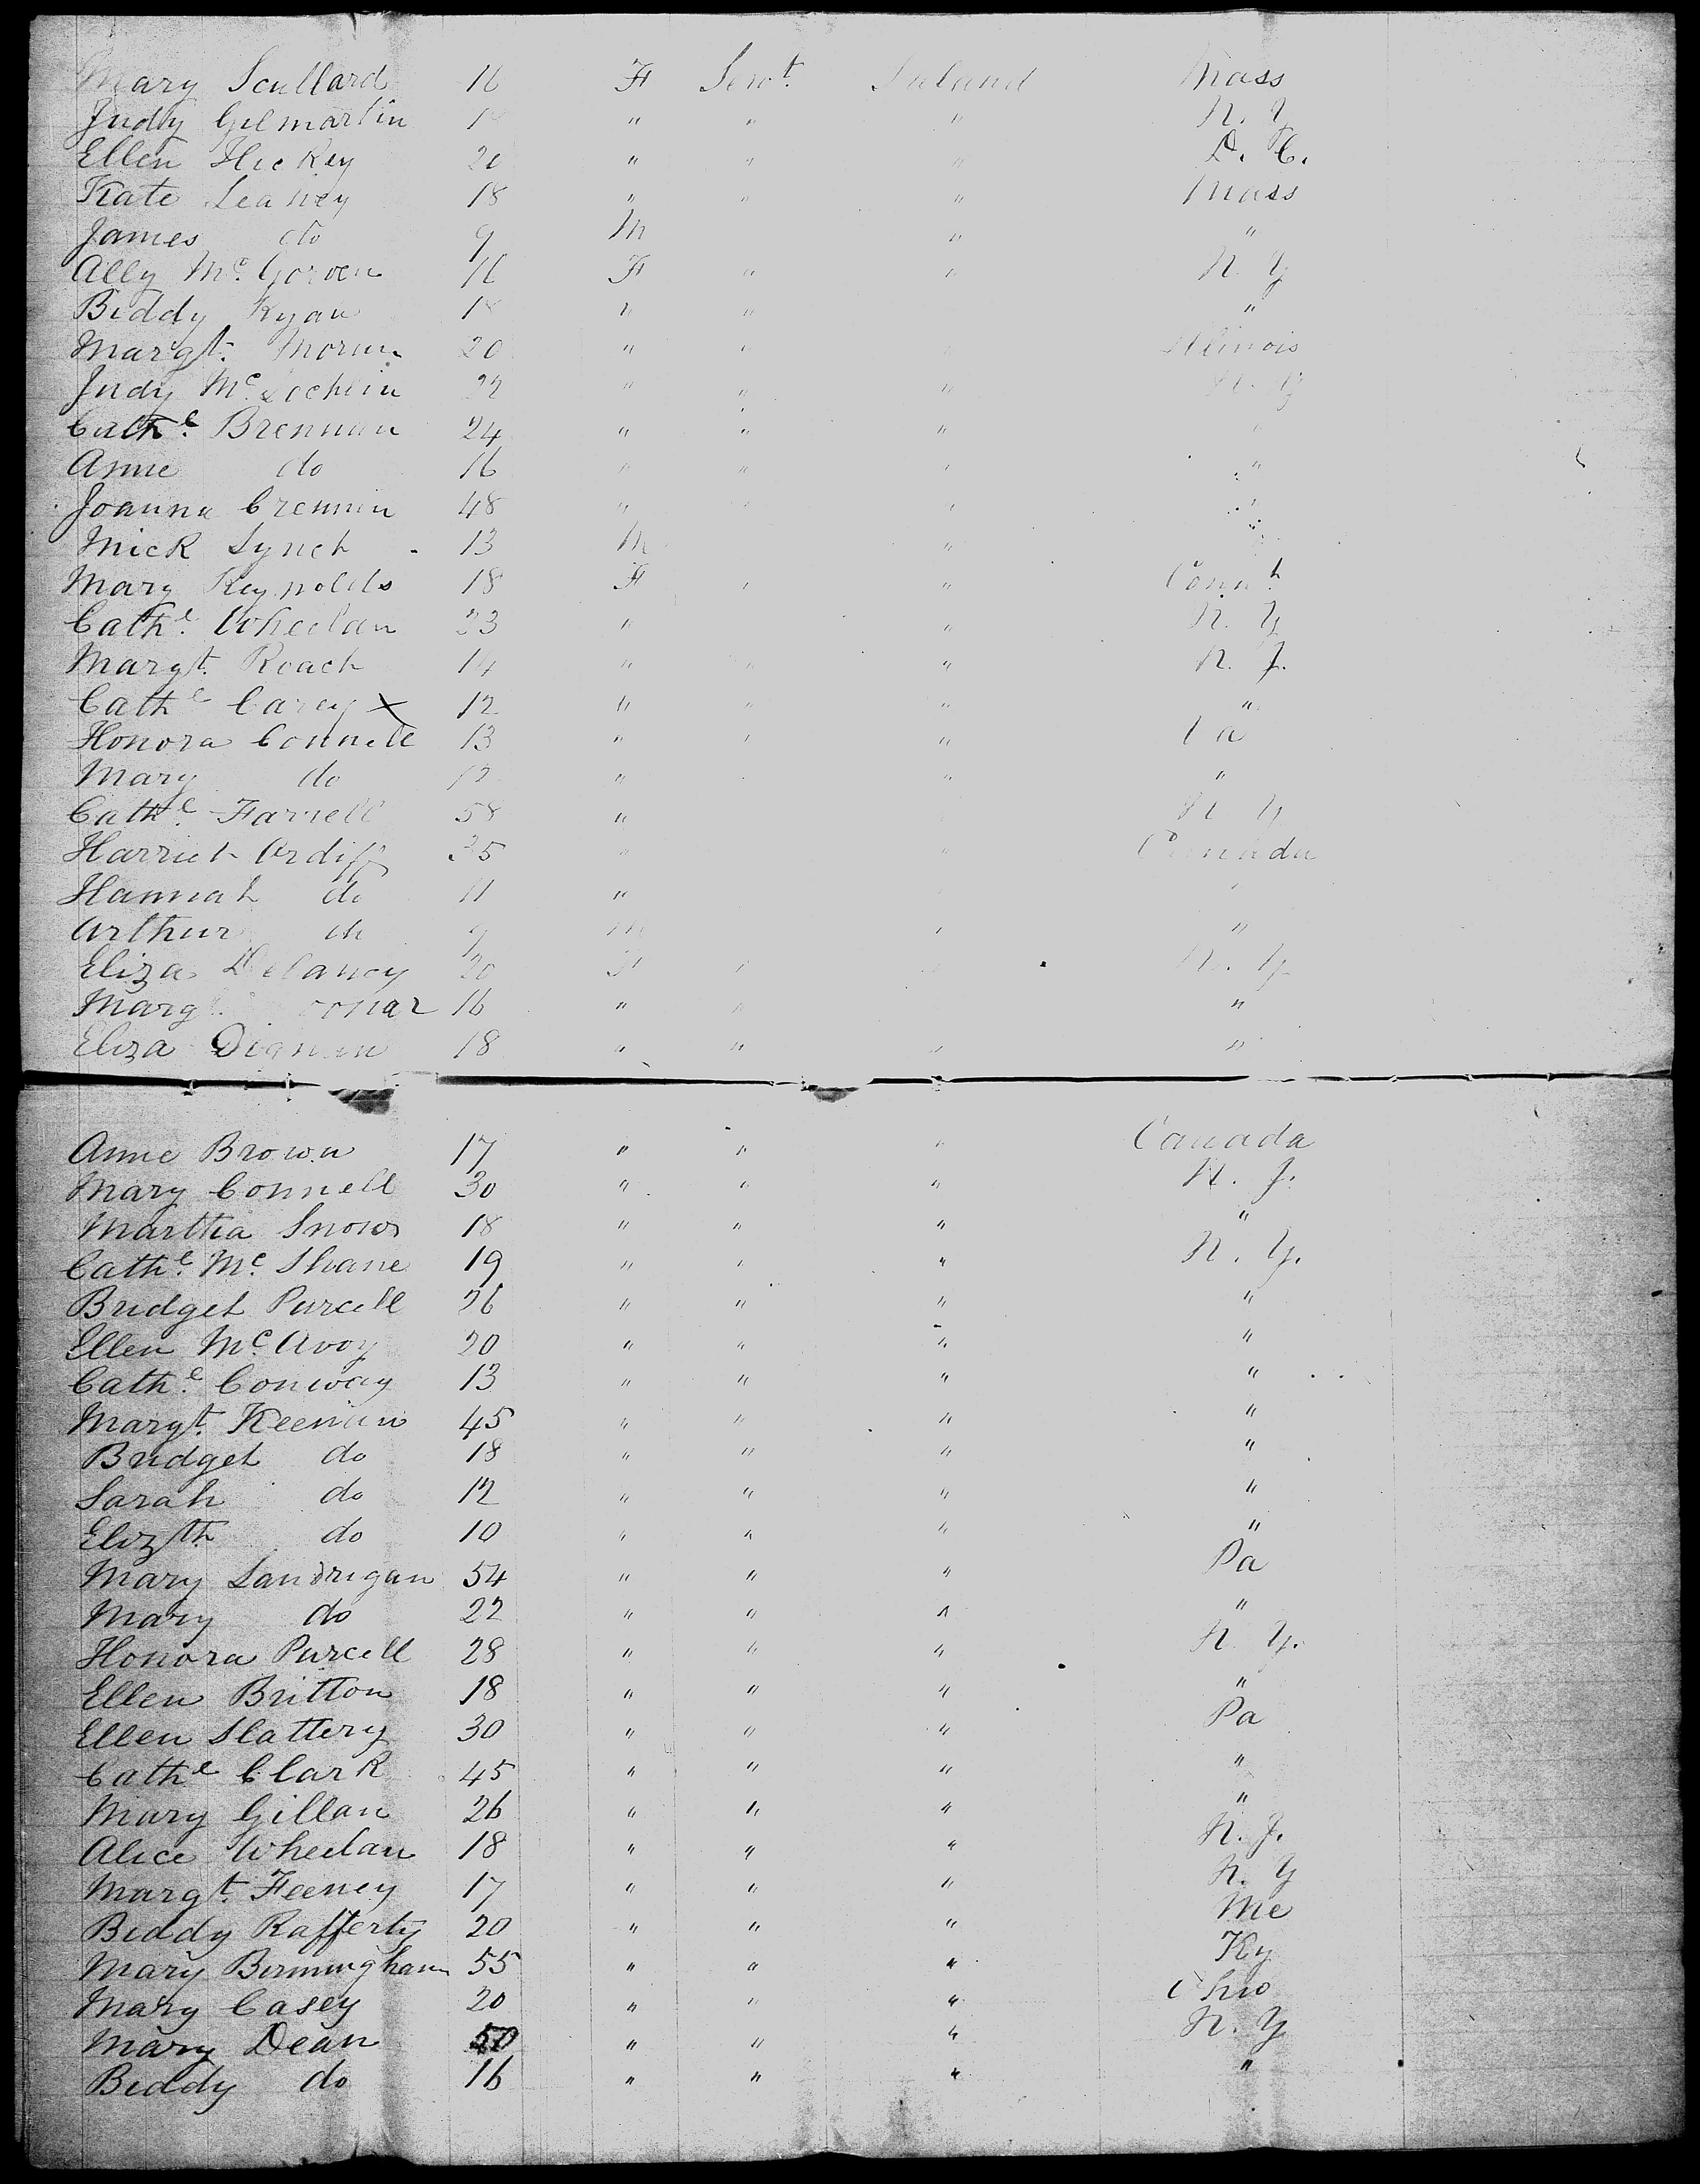 Mary Scullard 16 F Servt. Ireland Mass
Judy Gilmartin " " " N. Y
Ellen Hickey 20 " " " D. C.
Kate Leaney 18 " " " Mass
James do 9 M " "
Ally Mc. Goven 16 F " " N. Y
Biddy Ryan 18 " " "
Margt. Moran 20 " " Illinois
Judy Mc. Lochlin 22 " " " N. Y
Cathe. Brennan 24 " " "
Anne do 16 " " " "
Joanna Cremin 48 " " "
Mick Lynch 13 M "
Mary Reynolds 18 F " " Connt
Cathe. Wheelan 23 " " N. Y
Margt. Roach 14 " " " N. J.
Cathe Carey x 12 " " " "
Honora Connell 13 " " " Pa
Mary do 12 " " "
Cathe. Farrell 58 " N Y
Harriet Ardiff 35 " " Canada
Hannah do 11 " "
Arthur do 9 M " "
Eliza Delaney 20 F " N. Y
Margt. 16 " " "
Eliza Dignan 18 " " " "
Anne Brown 17 " " " Canada
Mary Connell 30 " " " N. J.
Martha Snow 18 " " " "
Cathe. Mc. Shane 19 " " " N. Y.
Bridget Purcell 26 " " " "
Ellen Mc. Avoy 20 " " " "
Cathe. Conway 13 " " " "
Margt. Keenan 45 " " " "
Bridget do 18 " " " "
Sarah do 12 " " " "
Elizth. do 10 " " " "
Mary Landrigan 54 " " " Pa
Mary do 22 " " " "
Honora Purcell 28 " " " N. Y.
Ellen Britton 18 " " " "
Ellen Slattery 30 " " " Pa
Cathe Clark 45 " " " "
Mary Gillan 26 " " " "
Alice Wheelan 18 " " " N. J.
Margt. Feeney 17 " " " N. Y
Biddy Rafferty 20 " " " Me
Mary Birmingham 55 " " " Ky
Mary Casey 20 " " " Ohio
Mary Dean 50 " " " N. Y
Biddy do 16 " " " "